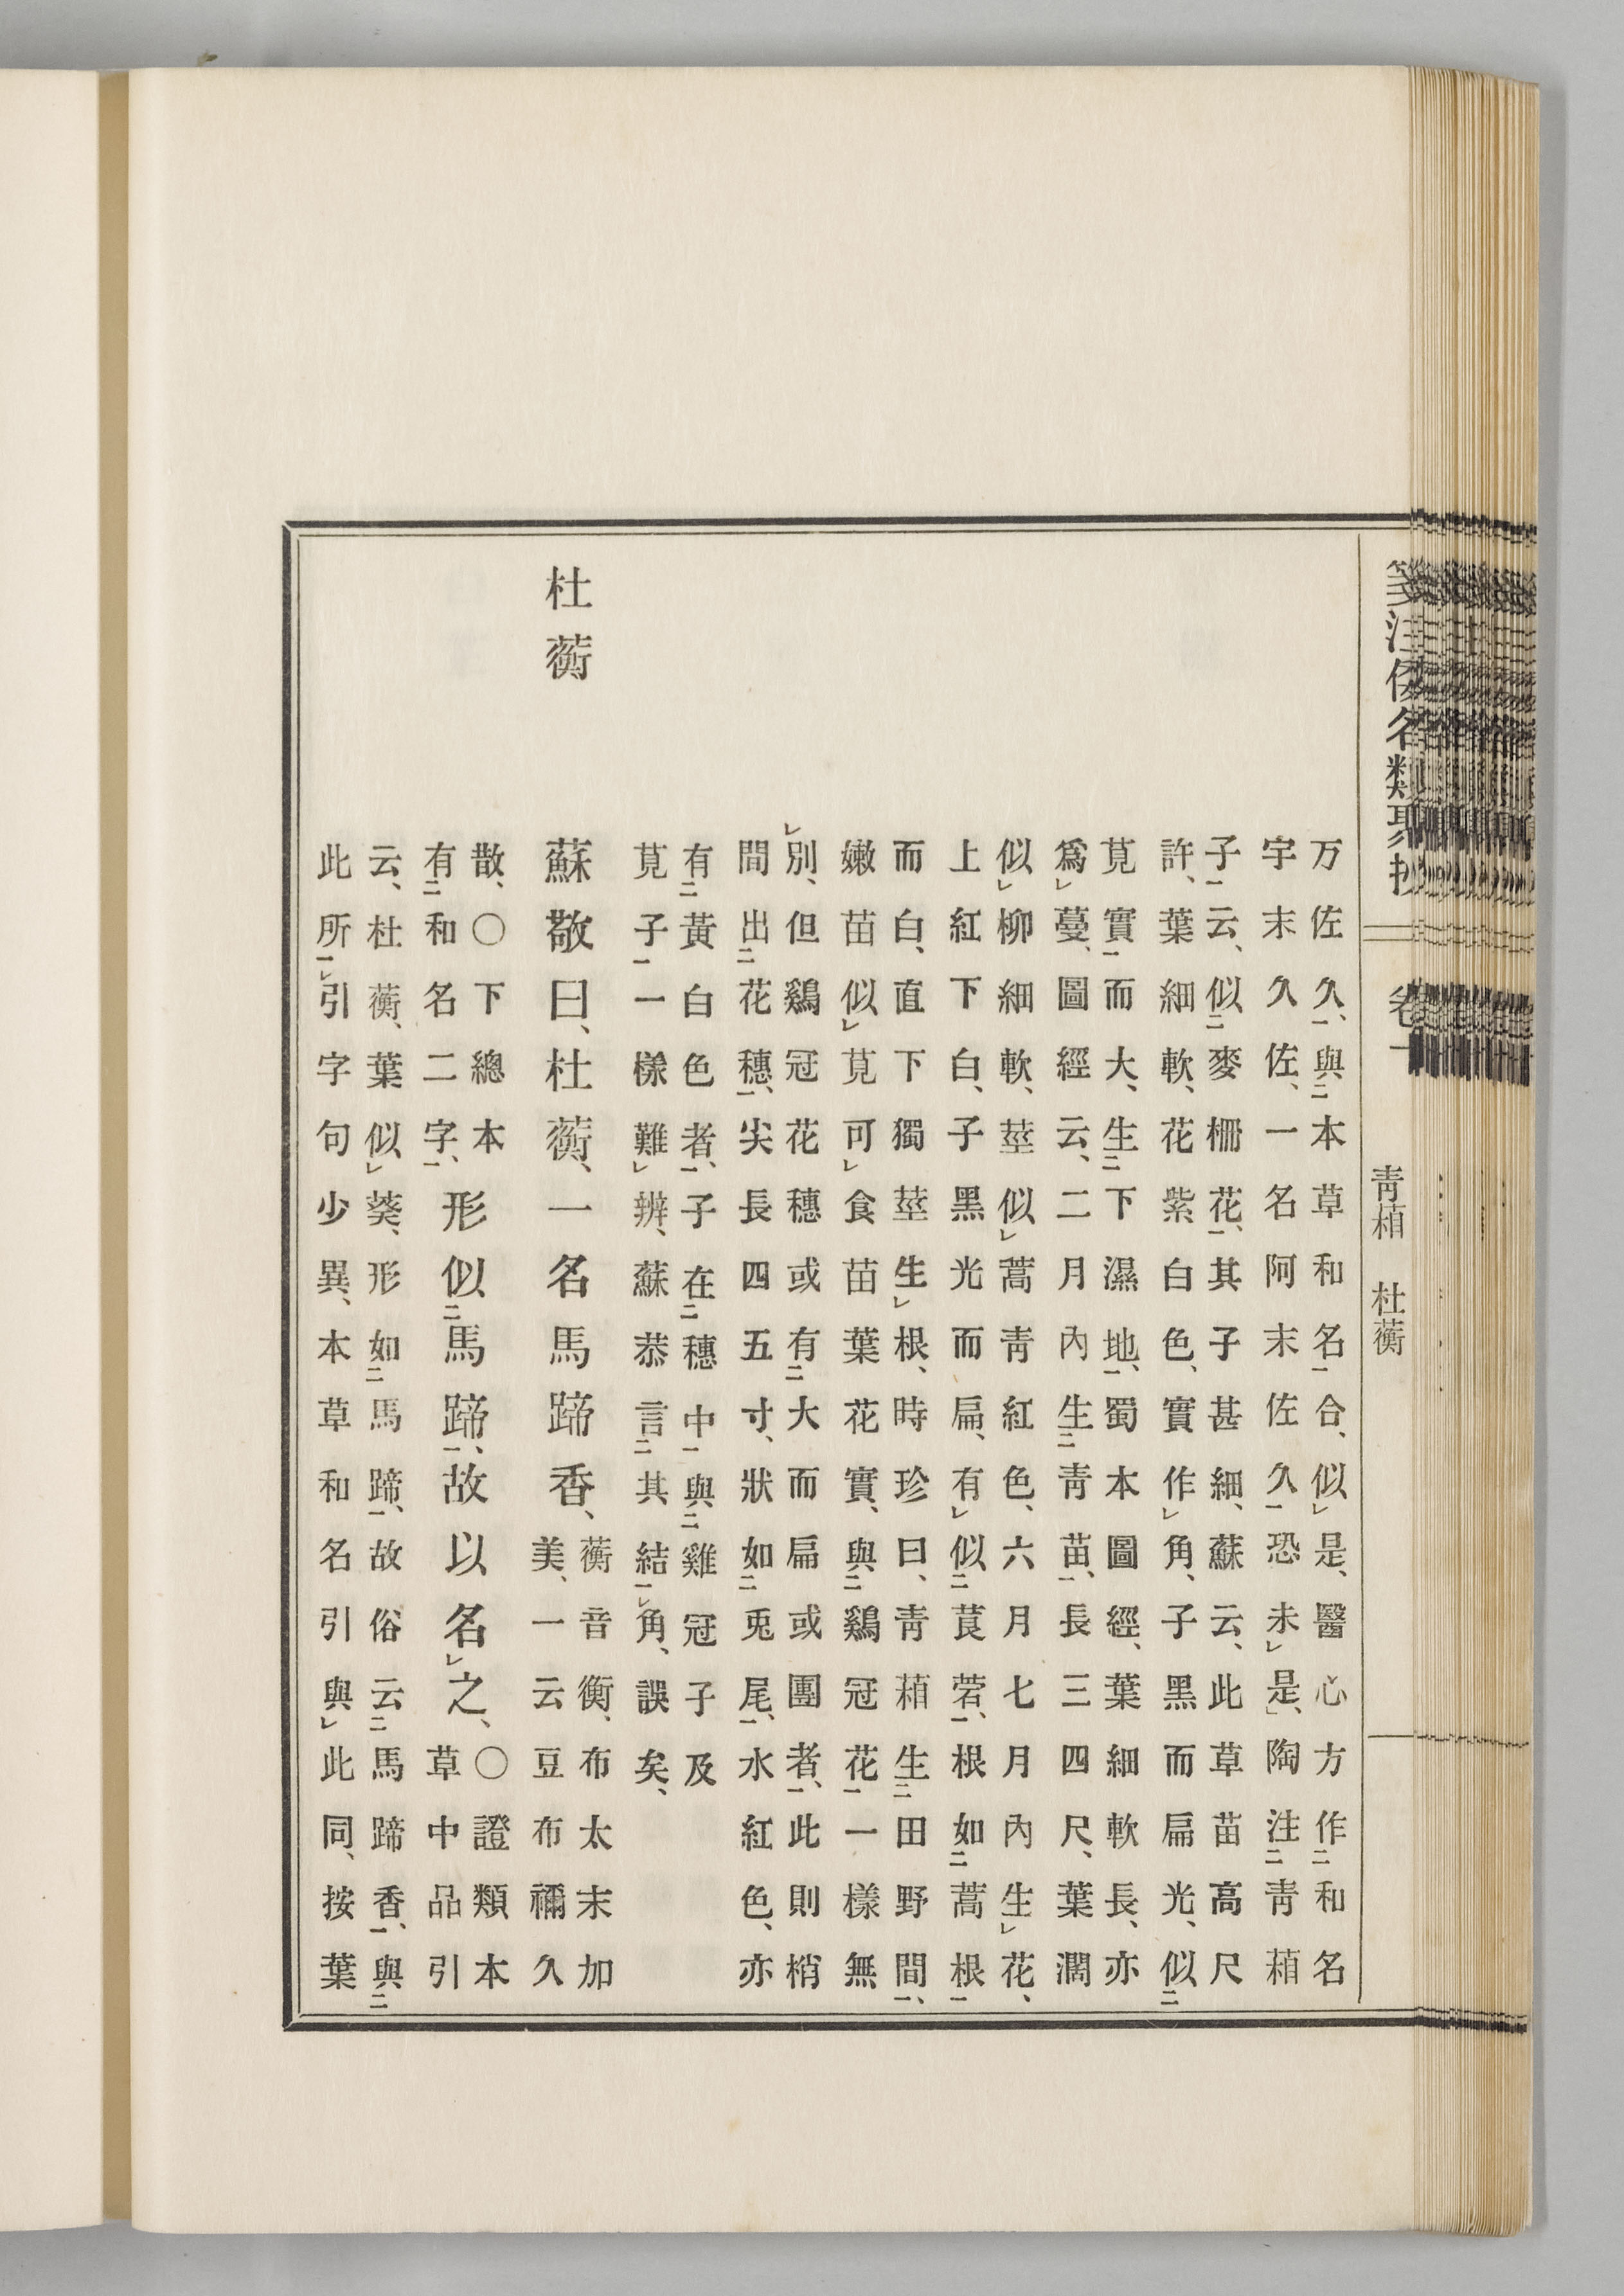 箋注倭名類聚抄　卷十　靑葙　杜蘅
万佐久、與本草和名合、似是、醫心方作和名
宇末久佐、一名阿末佐久恐未是、陶注靑葙
子云、似麥栅花、其子甚細、蘇云、此草苗高尺
許、葉細軟、花紫白色、實作角、子黑而扁光、似
莧實而大、生下濕地、蜀本圖經、葉細軟長、亦
爲蔓、圖經云、二月內生靑苗、長三四尺、葉濶
似柳細軟、莖似蒿靑紅色、六月七月內生花、
上紅下白、子黑光而扁、有似莨菪、根如蒿根
而白、直下獨莖生根、時珍曰、靑葙生田野間、
嫩苗似莧可食苗葉花實、與鷄冠花一樣無
別、但鷄冠花穗或有大而扁或團者、此則梢
間出花穗、尖長四五寸、狀如兎尾、水紅色、亦
有黃白色者、子在穗中與雞冠子及
莧子一樣難辨、蘇恭言其結角、誤矣、
杜蘅
蘇敬曰、杜蘅、一名馬蹄香、
蘅音衡、布太末加
美、一云豆布禰久
散、〇下總本
有和名二字、
形似馬蹄、故以名之、
〇證類本
草中品引
云、杜蘅、葉似葵、形如馬蹄、故俗云馬蹄香、與
此所引字句少異、本草和名引與此同、按葉